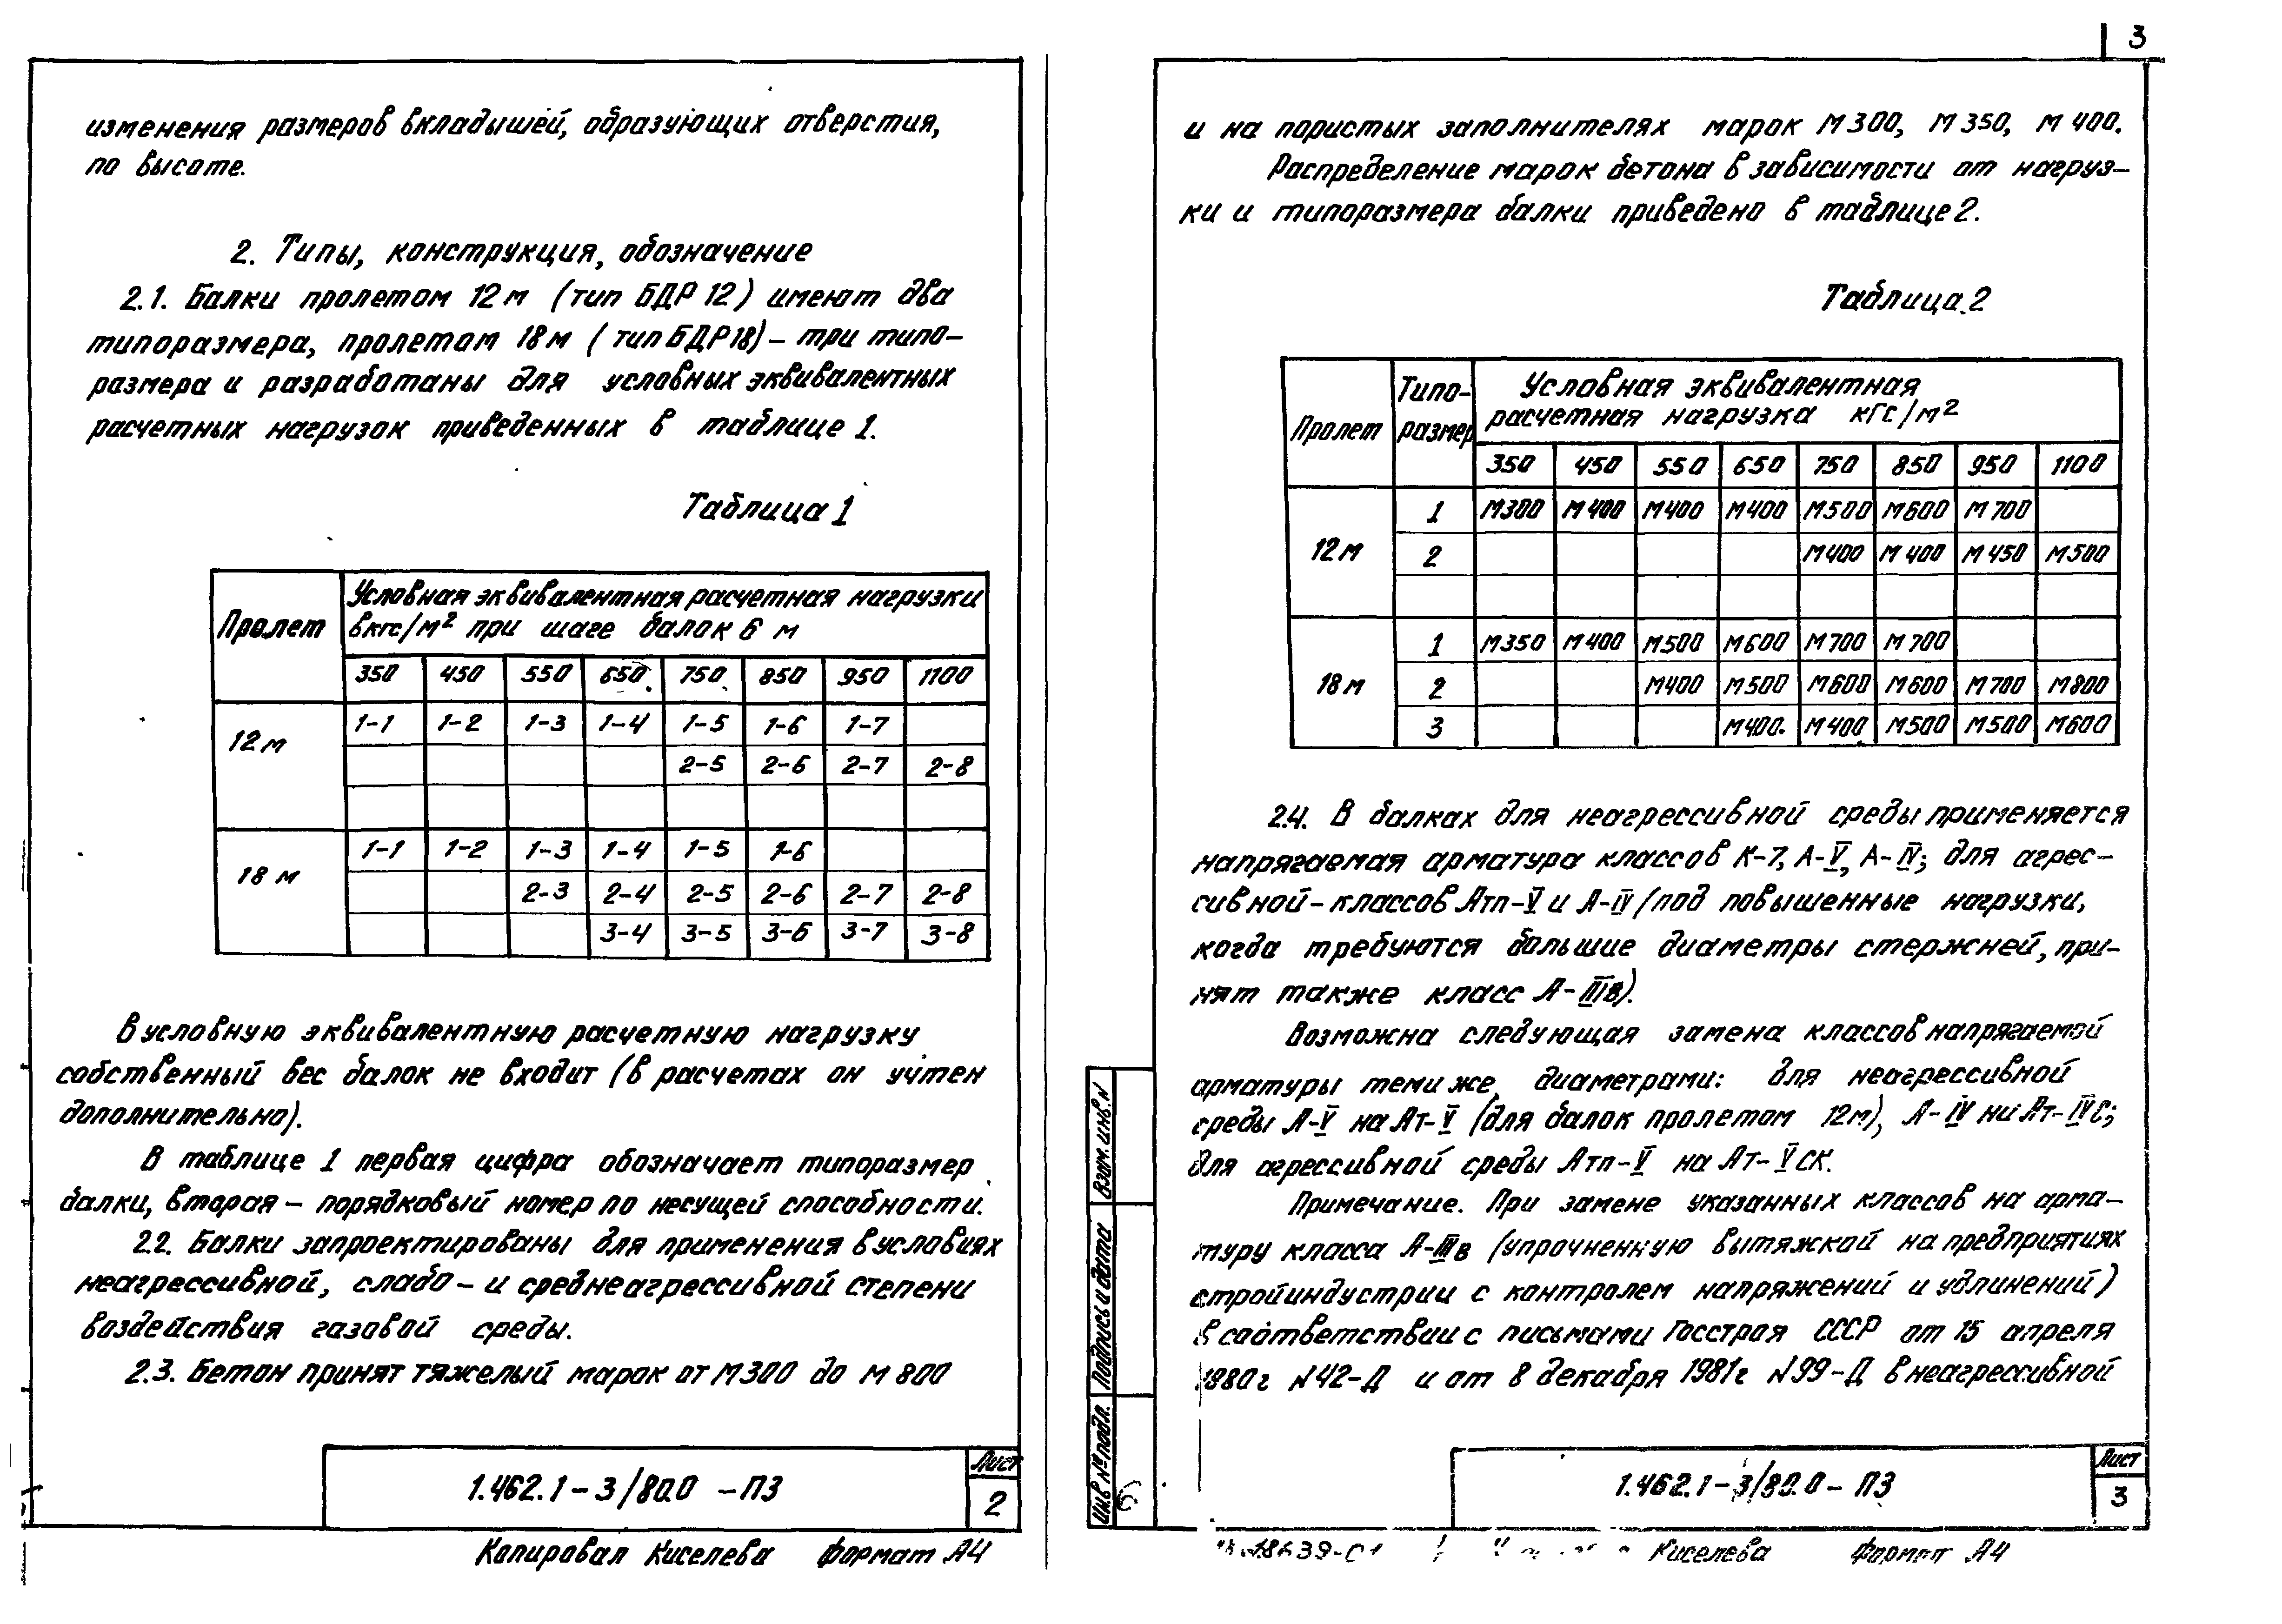 изменения размеров вкладышей, образующих отверстия,
по высоте.
2. Типы, конструкция, обозначение
2.1. Балки пролетом 12 м (тип БДР 12) имеют два
типоразмера, пролетом 18 м (тип БДР 18) – три типо-
размера и разработаны для условных эквивалентных
расчетных нагрузок приведенных в таблице 1.
Таблица 1
Пролет
Условная эквивалентная расчетная нагрузки
в кгс/м² при шаге балок 6 м
350 450 550 650 750 850 950 1100
12 м
1-1 1-2 1-3 1-4 1-5 1-6 1-7
2-5 2-6 2-7 2-8
18 м
1-1 1-2 1-3 1-4 1-5 1-6
2-3 2-4 2-5 2-6 2-7 2-8
3-4 3-5 3-6 3-7 3-8
В условную эквивалентную расчетную нагрузку
собственный вес балок не входит (в расчетах он учтен
дополнительно).
В таблице 1 первая цифра обозначает типоразмер
балки, вторая – порядковый номер по несущей способности.
2.2. Балки запроектированы для применения в условиях
неагрессивной, слабо – и среднеагрессивной степени
воздействия газовой среды.
2.3. Бетон принят тяжелый марок от М300 до М 800
1.462.1-3/80.0 -ПЗ
Лист
2
Копировал Киселева Формат А4
3
и на пористых заполнителях марок М300, М350, М400.
Распределение марок бетона в зависимости от нагруз-
ки и типоразмера балки приведено в таблице 2.
Таблица 2
Пролет
Типо-
размер
Условная эквивалентная
расчетная нагрузка кгс/м²
350 450 550 650 750 850 950 1100
12 м
1 М300 М400 М400 М400 М500 М600 М700
2 М400 М400 М450 М500
18 м
1 М350 М400 М500 М600 М700 М700
2 М400 М500 М600 М600 М700 М800
3 М400. М400 М500 М500 М600
2.4. В балках для неагрессивной среды применяется
напрягаемая арматура классов К-7, А-V, А-IV; для агрес-
сивной – классов Атп-V и А-IV (под повышенные нагрузки,
когда требуются большие диаметры стержней, при-
нят также класс А-IIIв).
Возможна следующая замена классов напрягаемой
арматуры теми же диаметрами: для неагрессивной
среды А-V на Ат-V (для балок пролетом 12м), А-IV на Ат-IVС;
для агрессивной среды Атп-V на Ат-VСК.
Примечание. При замене указанных классов на арма-
туру класса А-IIIв (упрочненную вытяжкой на предприятиях
стройиндустрии с контролем напряжений и удлинений)
в соответствии с письмами Госстроя СССР от 15 апреля
1980г №42-Д и от 8 декабря 1981г №99-Д в неагрессивной
Взам. инв. N
Подпись и дата
Инв № подл.
1.462.1-3/80.0 - ПЗ
Лист
3
18639-01
Киселева Формат А4